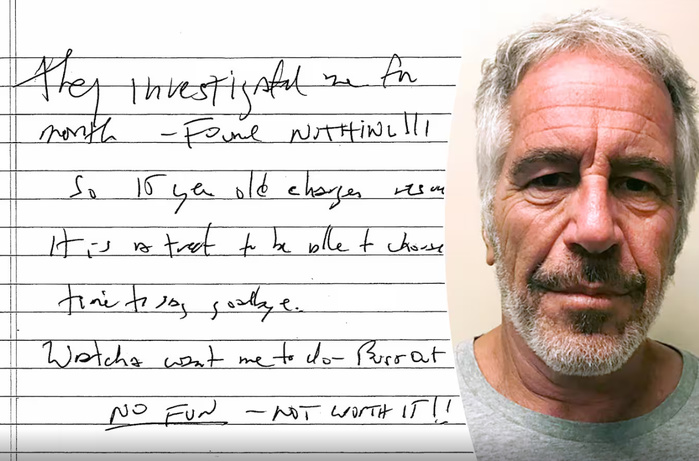 They investigated me for
month - Found NOTHING!!!
So 15 year old charges
It is a treat to be able to choose
time to say goodbye.
Watcha want me to do - out
NO FUN - NOT WORTH IT!!